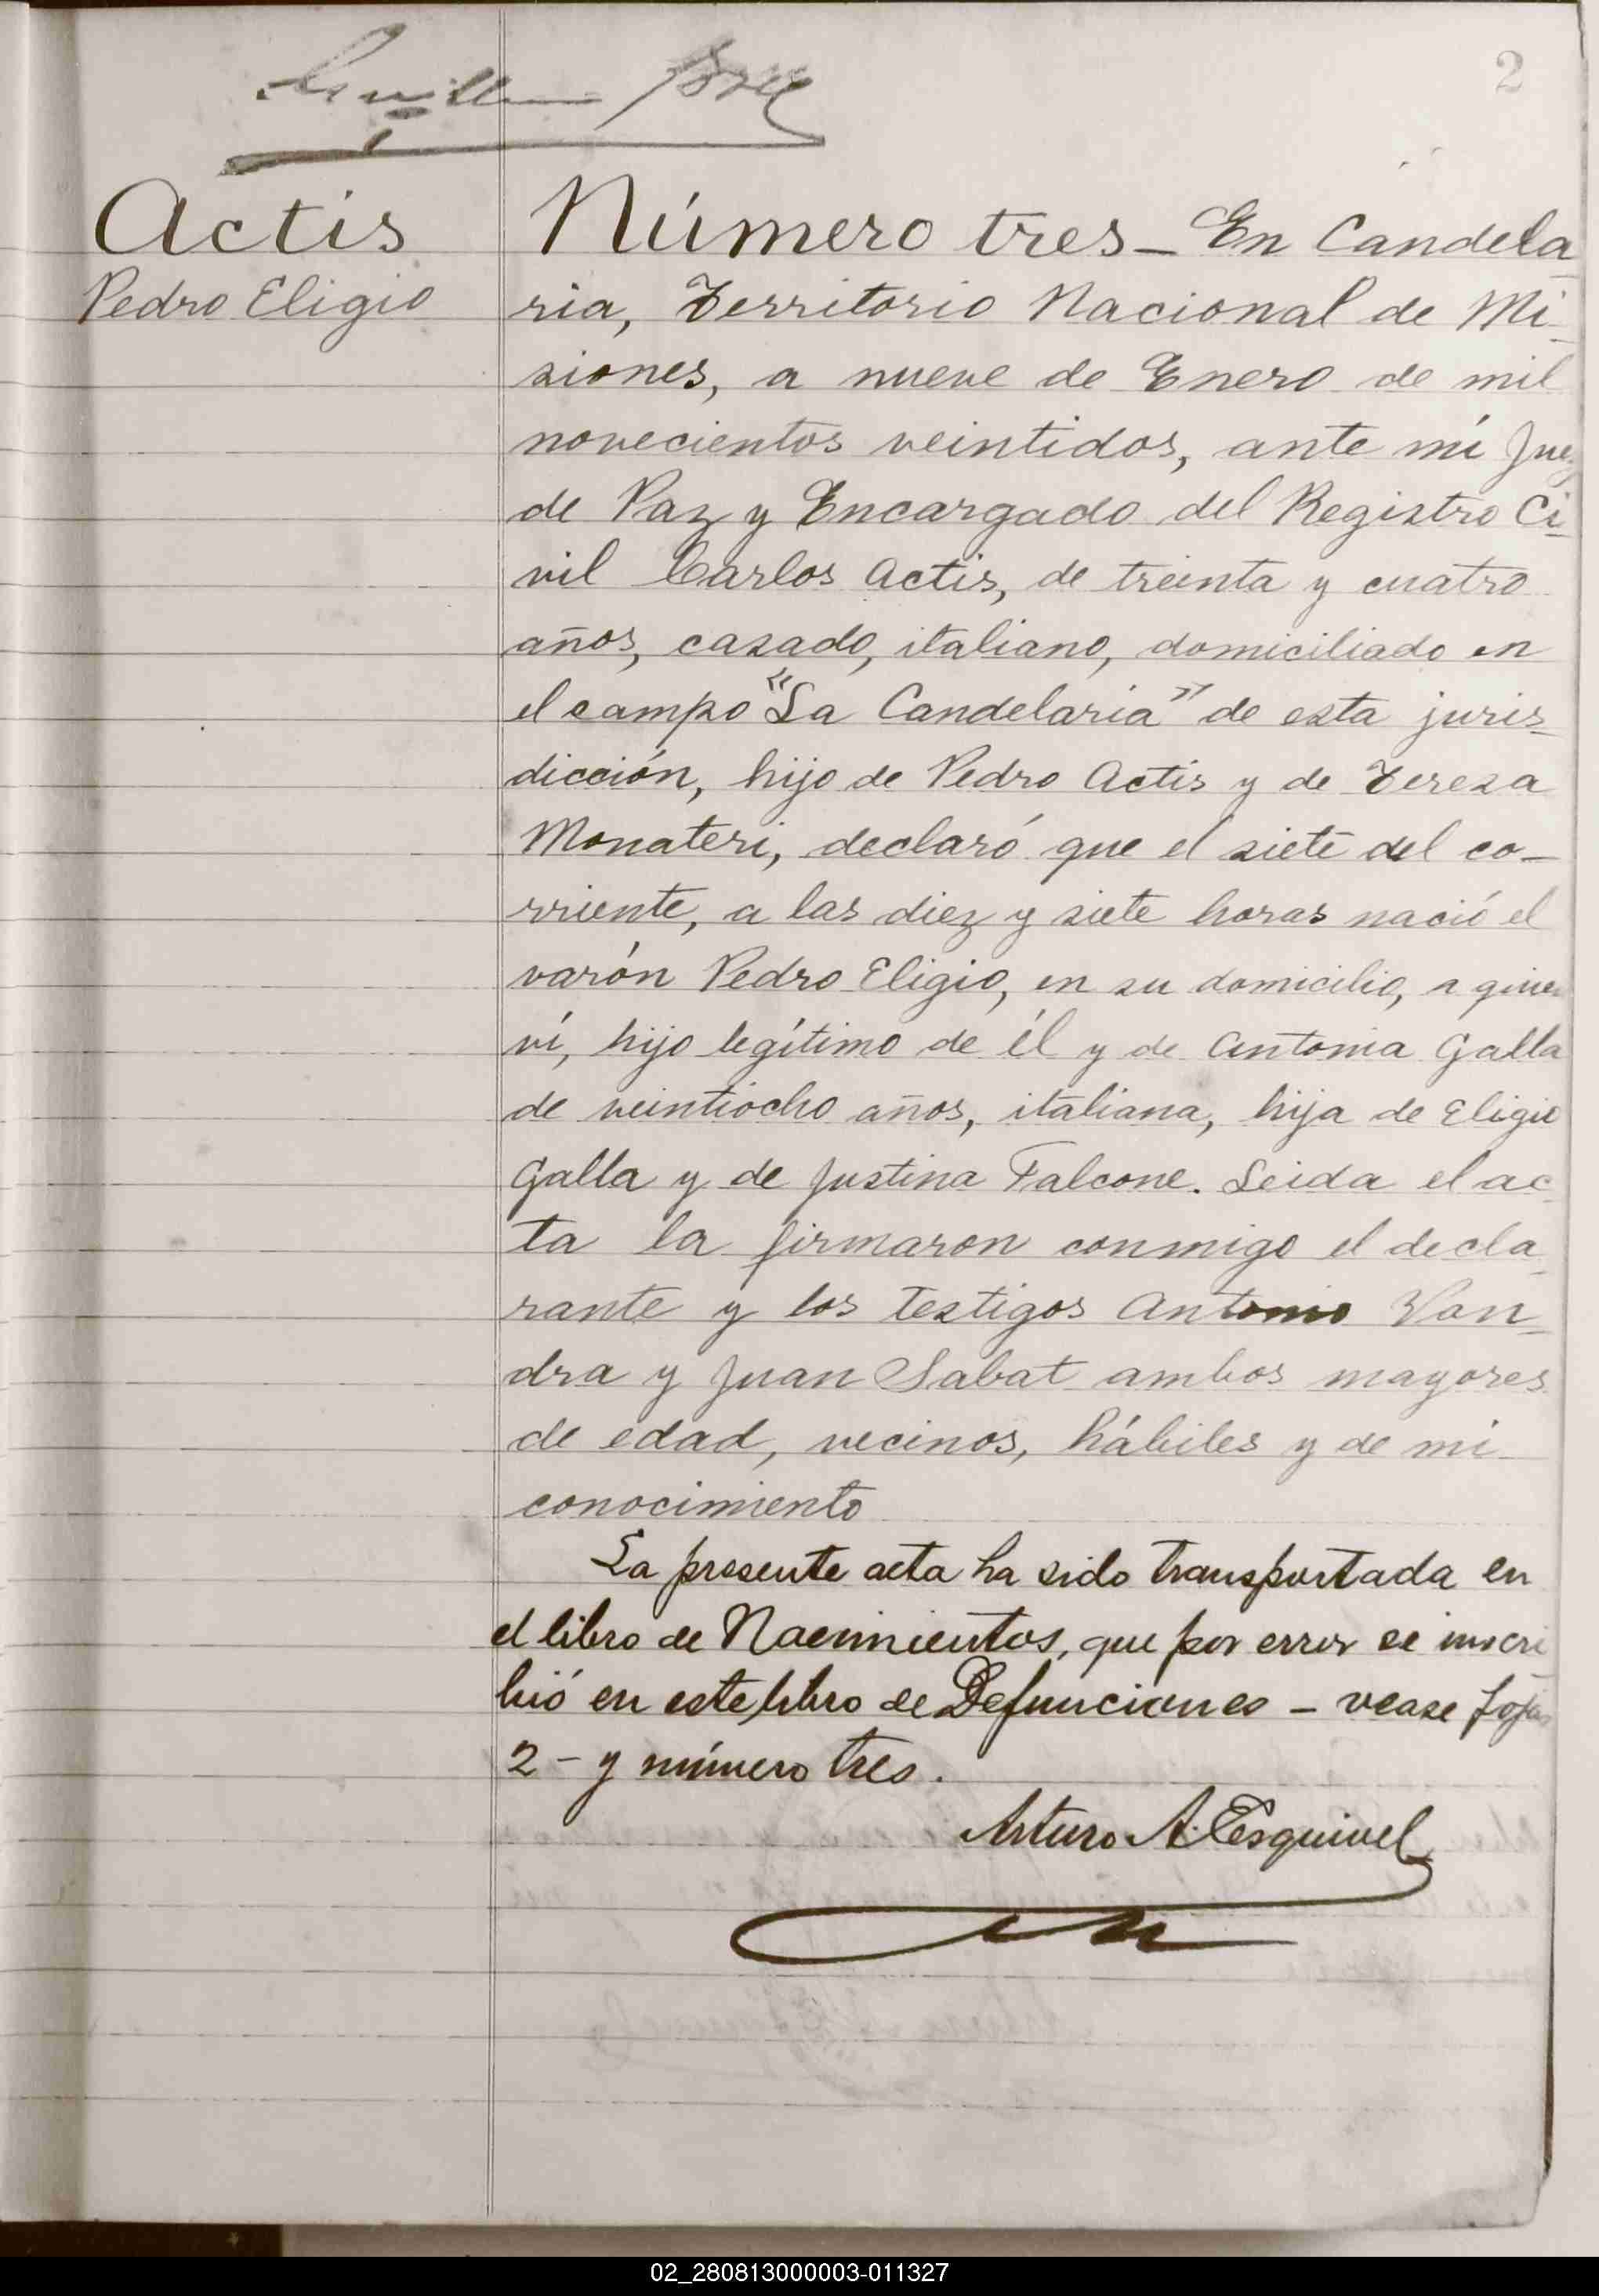 2
Actis
Pedro Eligio
Número tres _ En Candela
ria, Territorio Nacional de Mi
siones, a nueve de Enero de mil
novecientos veintidos, ante mí Juez
de Paz y Encargado del Registro Ci
vil Carlos Actis, de treinta y cuatro
años, casado, italiano, domiciliado en
el campo "La Candelaria" de esta juris
dicción, hijo de Pedro Actis y de Teresa
Monateri, declaró que el siete del co-
rriente, a las diez y siete horas nació el
varón Pedro Eligio, en su domicilio, a quien
ví, hijo legítimo de él y de Antonia Galla
de veintiocho años, italiana, hija de Eligio
Galla y de Justina Falcone. Leida el ac
ta la firmaron conmigo el decla
rante y los testigos Antonio Van
dra y Juan Sabat ambos mayores
de edad, vecinos, hábiles y de mi
conocimiento
La presente acta ha sido transportada en
el libro de Nacimientos, que por error se inscri
bió en este libro de Defunciones - vease fojas
2 - y número tres.
Arturo A. Esquivel
02_280813000003-011327